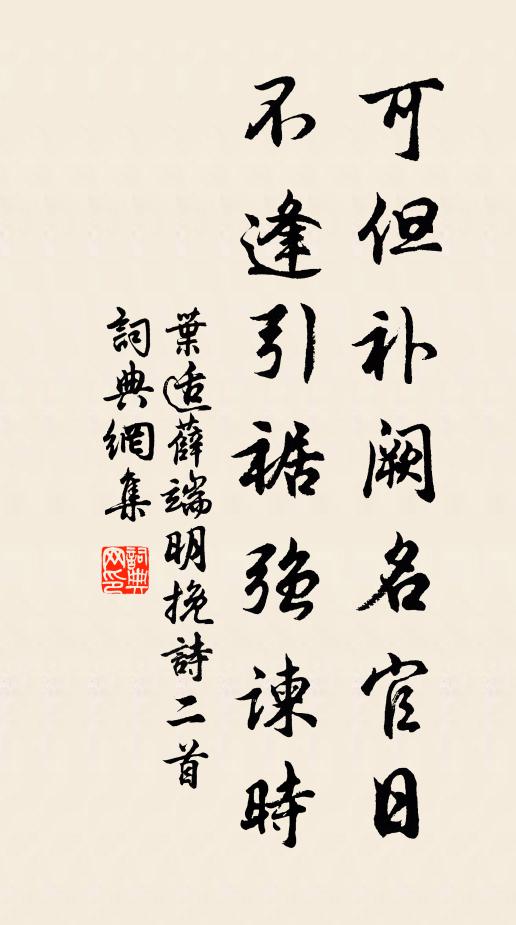 可但补阙名官日
不逢引裾强谏時
葉适薛端明挽詩二首
詞典網集
詞典網印